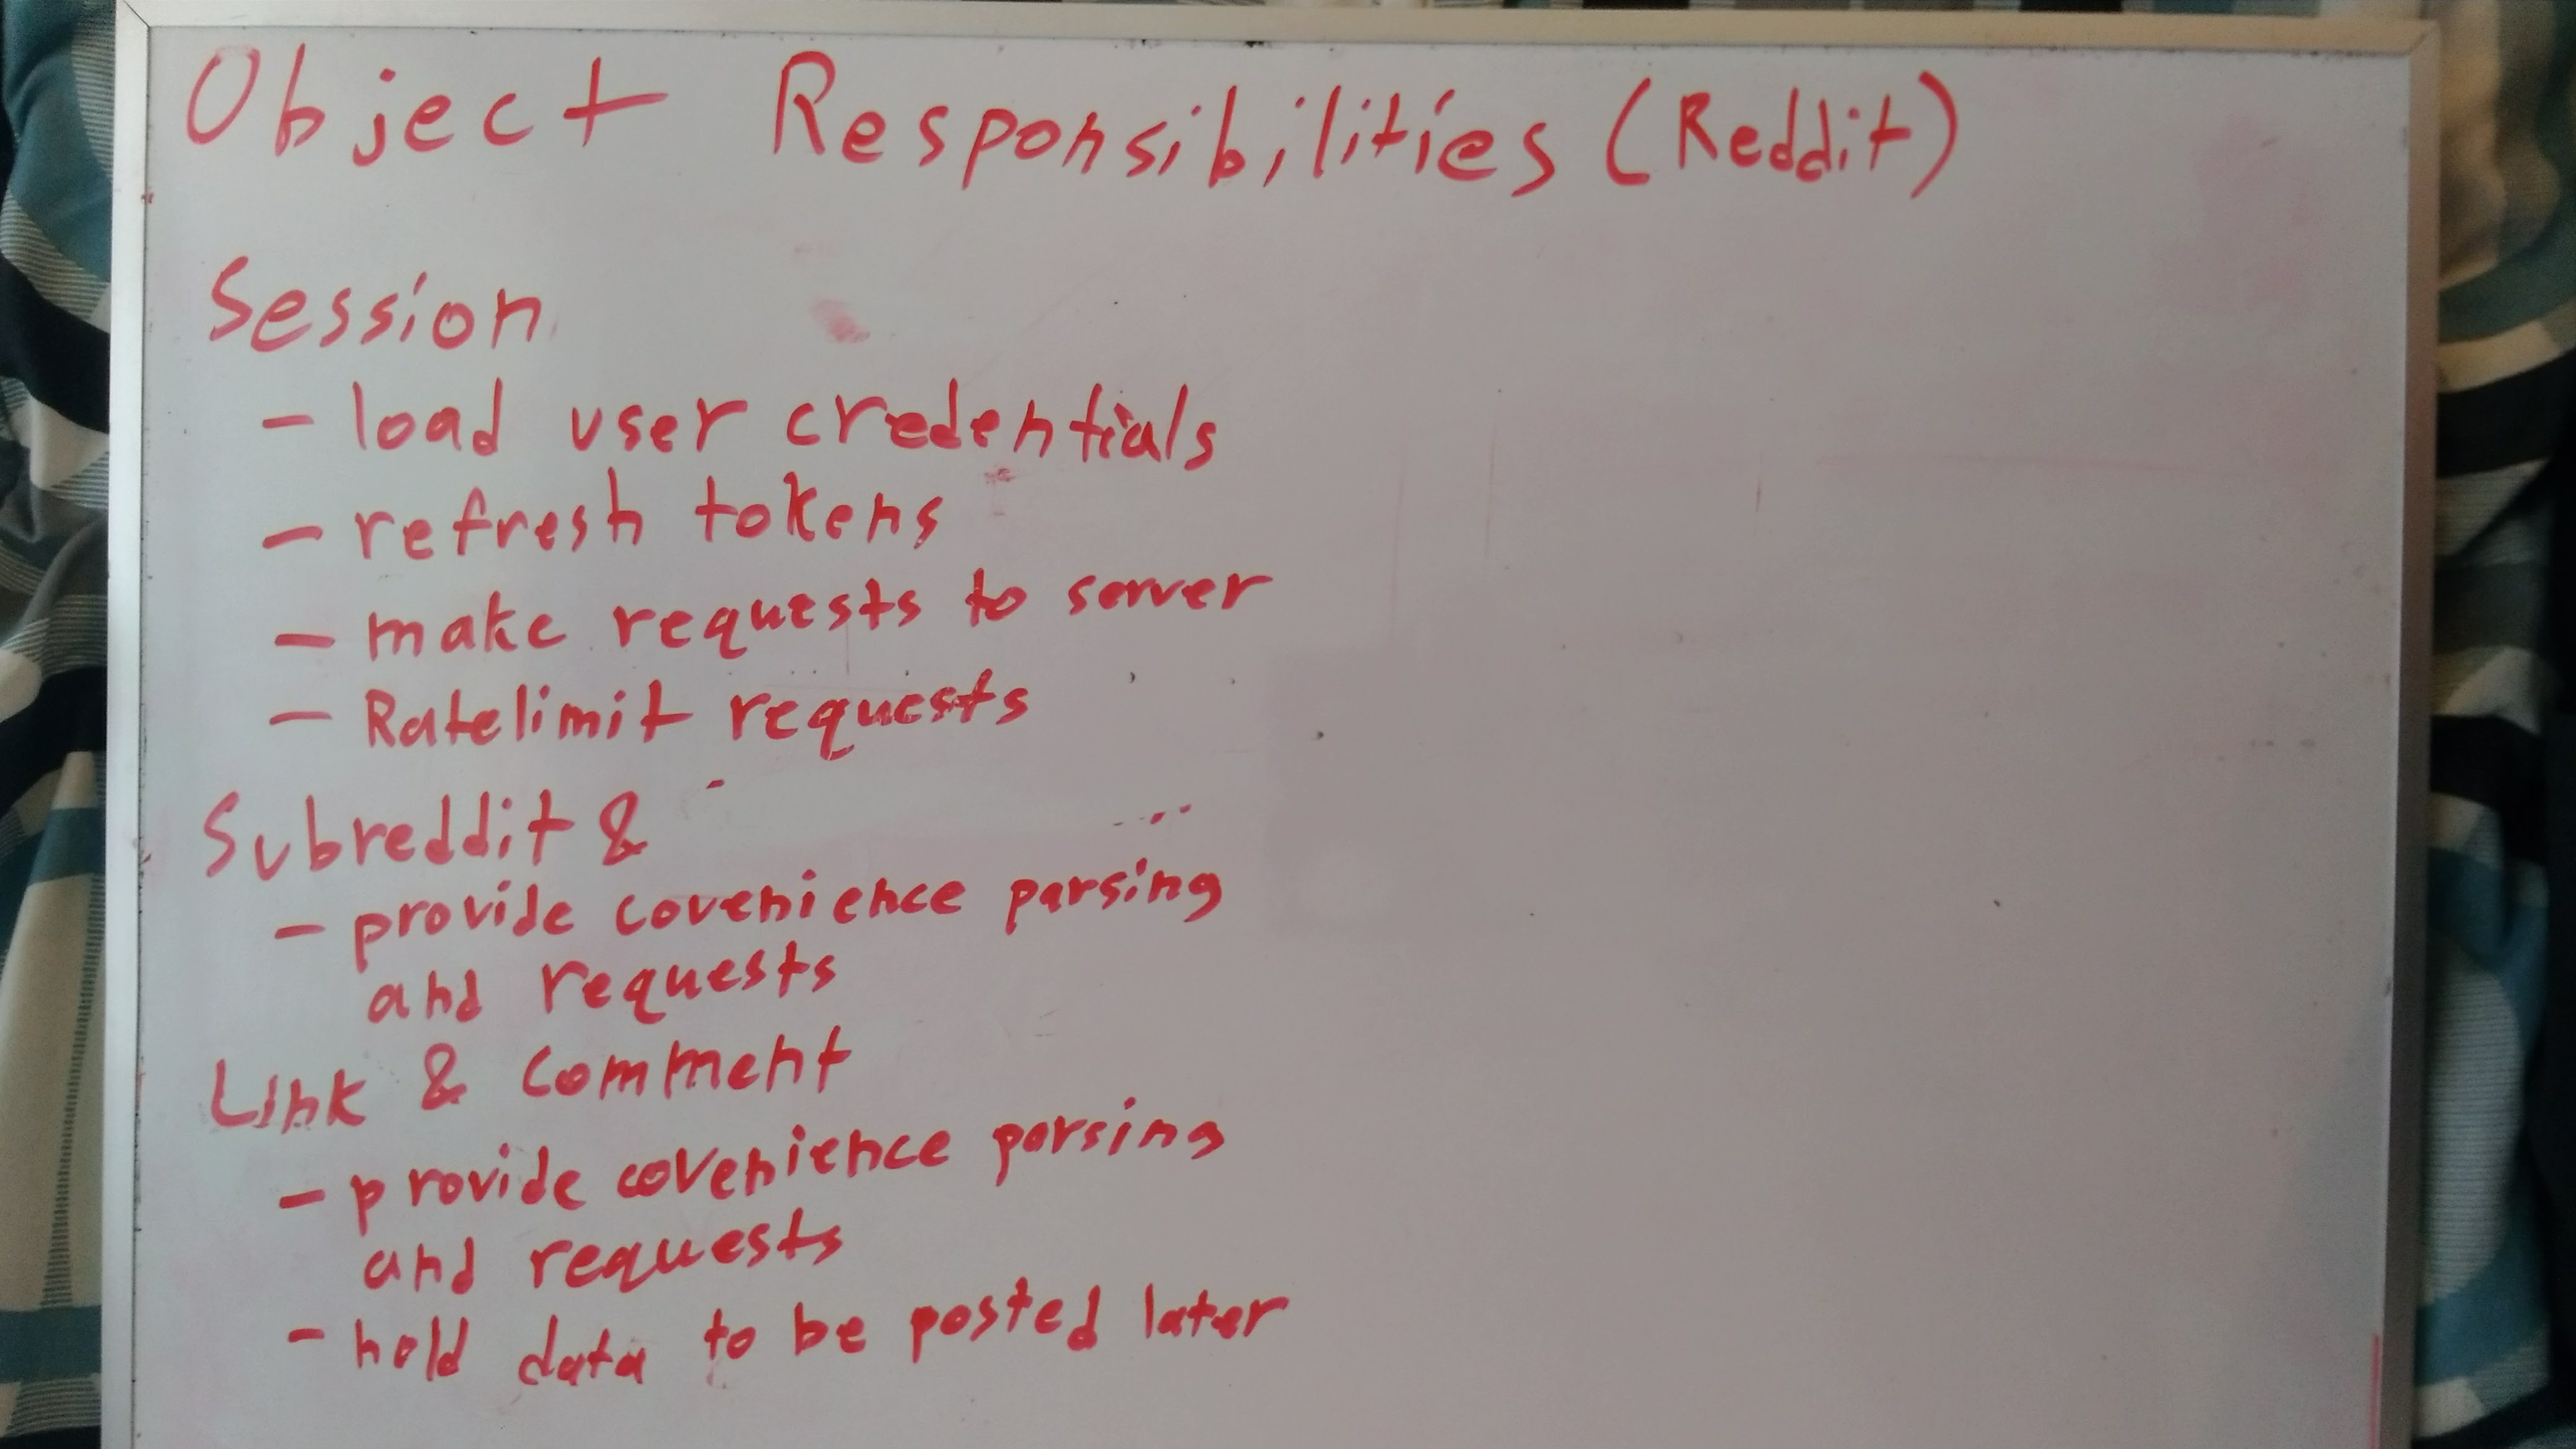 Object Responsibilities (Reddit)
Session
- load user credentials
- refresh tokens
- make requests to server
- Ratelimit requests
Subreddit &
- provide covenience parsing
and requests
Link & Comment
- provide covenience parsing
and requests
- hold data to be posted later